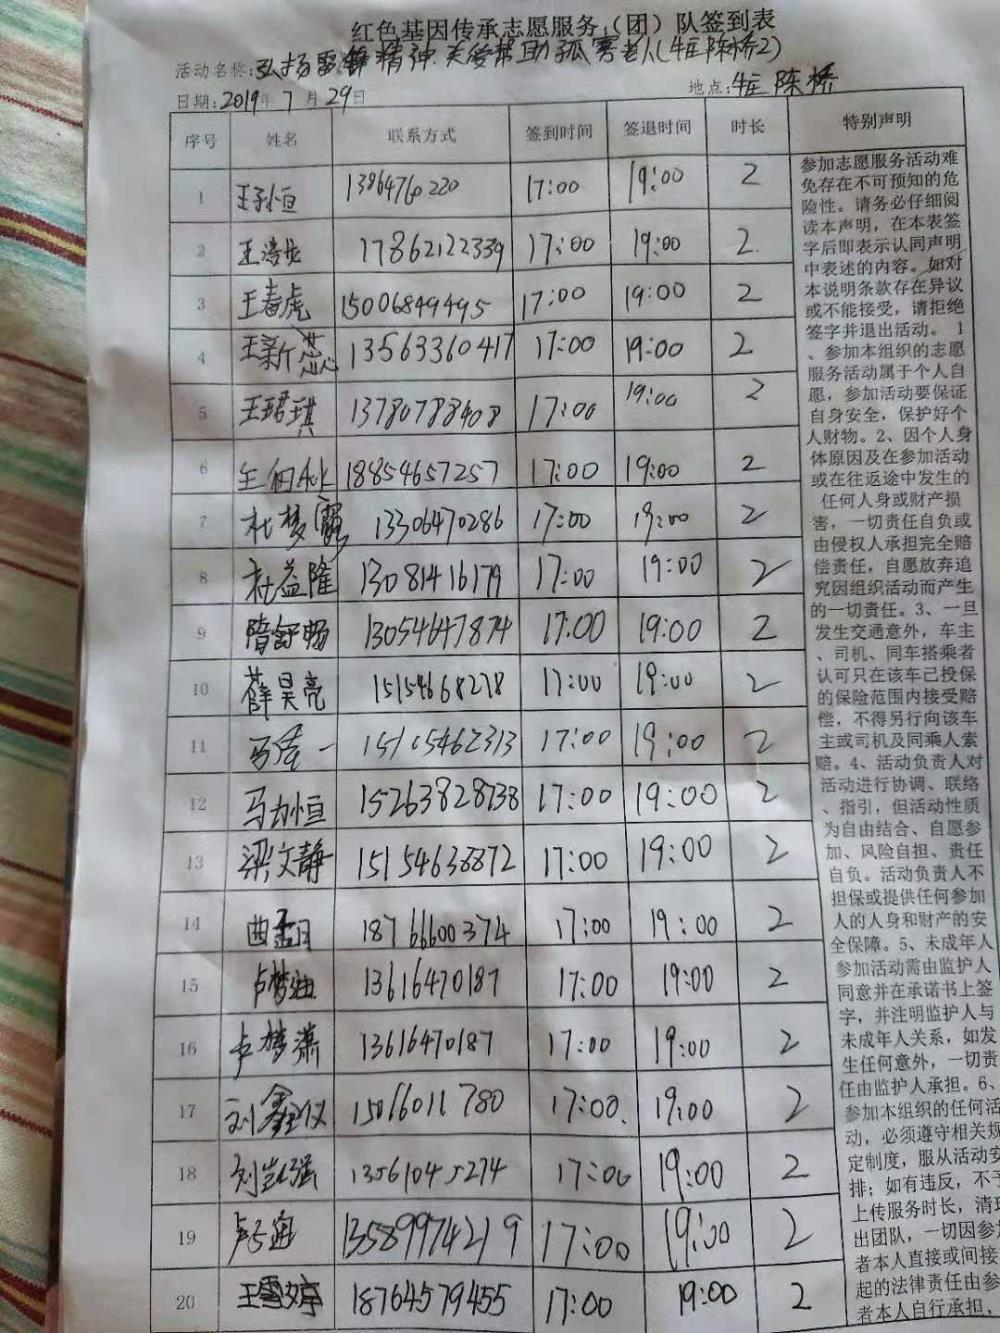 红色基因传承志愿服务（团）队签到表
活动名称：弘扬雷锋精神 关爱帮助孤寡老人（牛庄陈桥2）
日期：2019年7月29日 地点：牛庄陈桥
序号 姓名 联系方式 签到时间 签退时间 时长 特别声明
1 王子恒 13864760220 17:00 19:00 2
2 王 17862122339 17:00 19:00 2
3 王春虎 15006849495 17:00 19:00 2
4 王新蕊 13563360417 17:00 19:00 2
5 王珺琪 13780788408 17:00 19:00 2
6 18854657257 17:00 19:00 2
7 杜梦露 13306470286 17:00 19:00 2
8 杜益隆 13081416179 17:00 19:00 2
9 隋舒畅 13054647874 17:00 19:00 2
10 薛昊亮 15154668278 17:00 19:00 2
11 马 一 15105462313 17:00 19:00 2
12 马力恒 15263828738 17:00 19:00 2
13 梁文静 15154638872 17:00 19:00 2
14 曲 18766600374 17:00 19:00 2
15 卢梦迪 13616470187 17:00 19:00 2
16 卢梦潇 13616470187 17:00 19:00 2
17 刘鑫仪 15066011780 17:00 19:00 2
18 刘 强 13561045274 17:00 19:00 2
19 卢 13589974219 17:00 19:00 2
20 王雪婷 18764579455 17:00 19:00 2
参加志愿服务活动难
免存在不可预知的危
险性。请务必仔细阅
读本声明，在本表签
字后即表示认同声明
中表述的内容。如对
本说明条款存在异议
或不能接受，请拒绝
签字并退出活动。 1
、参加本组织的志愿
服务活动属于个人自
愿，参加活动要保证
自身安全，保护好个
人财物。2、因个人身
体原因及在参加活动
或在往返途中发生的
任何人身或财产损
害，一切责任自负或
由侵权人承担完全赔
偿责任，自愿放弃追
究因组织活动而产生
的一切责任。3、一旦
发生交通意外，车主
、司机、同车搭乘者
认可只在该车已投保
的保险范围内接受赔
偿，不得另行向该车
主或司机及同乘人索
赔。4、活动负责人对
活动进行协调、联络
、指引，但活动性质
为自由结合、自愿参
加、风险自担、责任
自负。活动负责人不
担保或提供任何参加
人的人身和财产的安
全保障。5、未成年人
参加活动需由监护人
同意并在承诺书上签
字，并注明监护人与
未成年人关系，如发
生任何意外，一切责
任由监护人承担。6、
参加本组织的任何活
动，必须遵守相关规
定制度，服从活动安
排；如有违反，不予
上传服务时长，清
出团队，一切因参
者本人直接或间接
起的法律责任由参
者本人自行承担，